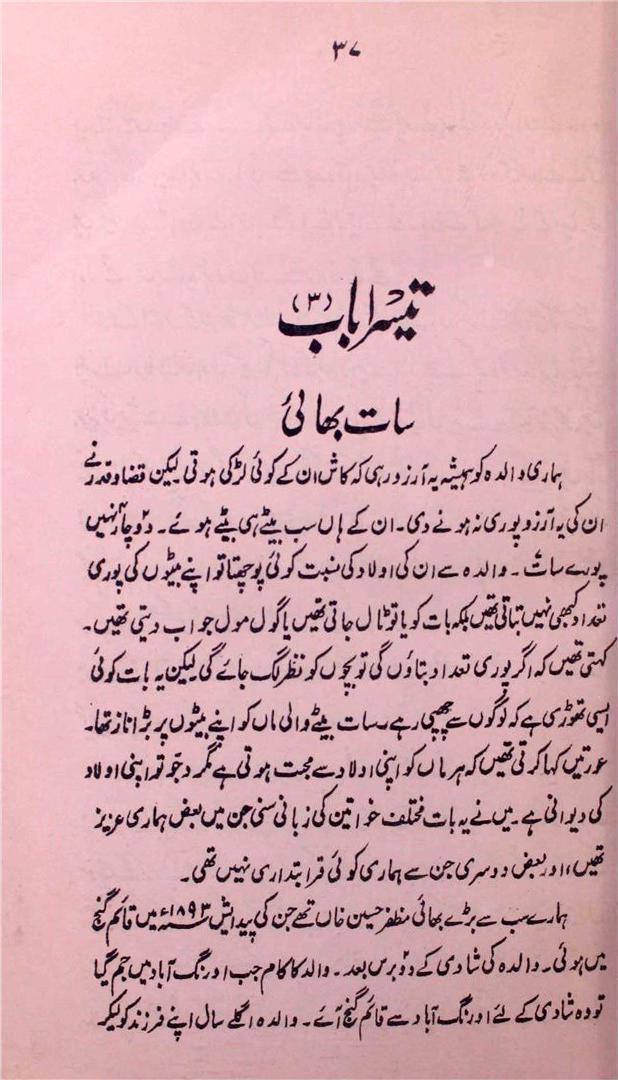 ۳۷
تیسرا باب (۳)
سات بھائی
ہماری والدہ کو ہمیشہ یہ آرزو رہی کہ کاش ان کے کوئی لڑکی ہوتی لیکن قضا و قدر نے
ان کی یہ آرزو پوری نہ ہونے دی۔ ان کے ہاں سب بیٹے ہی بیٹے ہوئے۔ دو چار نہیں
پورے سات۔ والدہ سے ان کی اولاد کی نسبت کوئی پوچھتا تو اپنے بیٹوں کی پوری
تعداد کبھی نہیں بتاتی تھیں بلکہ بات کو یا تو ٹال جاتی تھیں یا گول مول جواب دیتی تھیں۔
کہتی تھیں کہ اگر پوری تعداد بتاؤں گی تو بچوں کو نظر لگ جائے گی لیکن یہ بات کوئی
ایسی تھوڑی ہے کہ لوگوں سے چھپی رہے۔ سات بیٹے والی ماں کو اپنے بیٹوں پر بڑا ناز تھا۔
عورتیں کہا کرتی تھیں کہ ہر ماں کو اپنی اولاد سے محبت ہوتی ہے مگر دجّو تو اپنی اولاد
کی دیوانی ہے۔ میں نے یہ بات مختلف خواتین کی زبانی سنی جن میں بعض ہماری عزیز
تھیں، اور بعض دوسری جن سے ہماری کوئی قرابتداری نہیں تھی۔
ہمارے سب سے بڑے بھائی مظفر حسین خاں تھے جن کی پیدائش ۱۸۹۳ء میں قائم گنج
میں ہوئی۔ والدہ کی شادی کے دو برس بعد۔ والد کا کام جب اورنگ آباد میں جم گیا
تو وہ شادی کے لئے اورنگ آباد سے قائم گنج آئے۔ والدہ اگلے سال اپنے فرزند کو لیکر